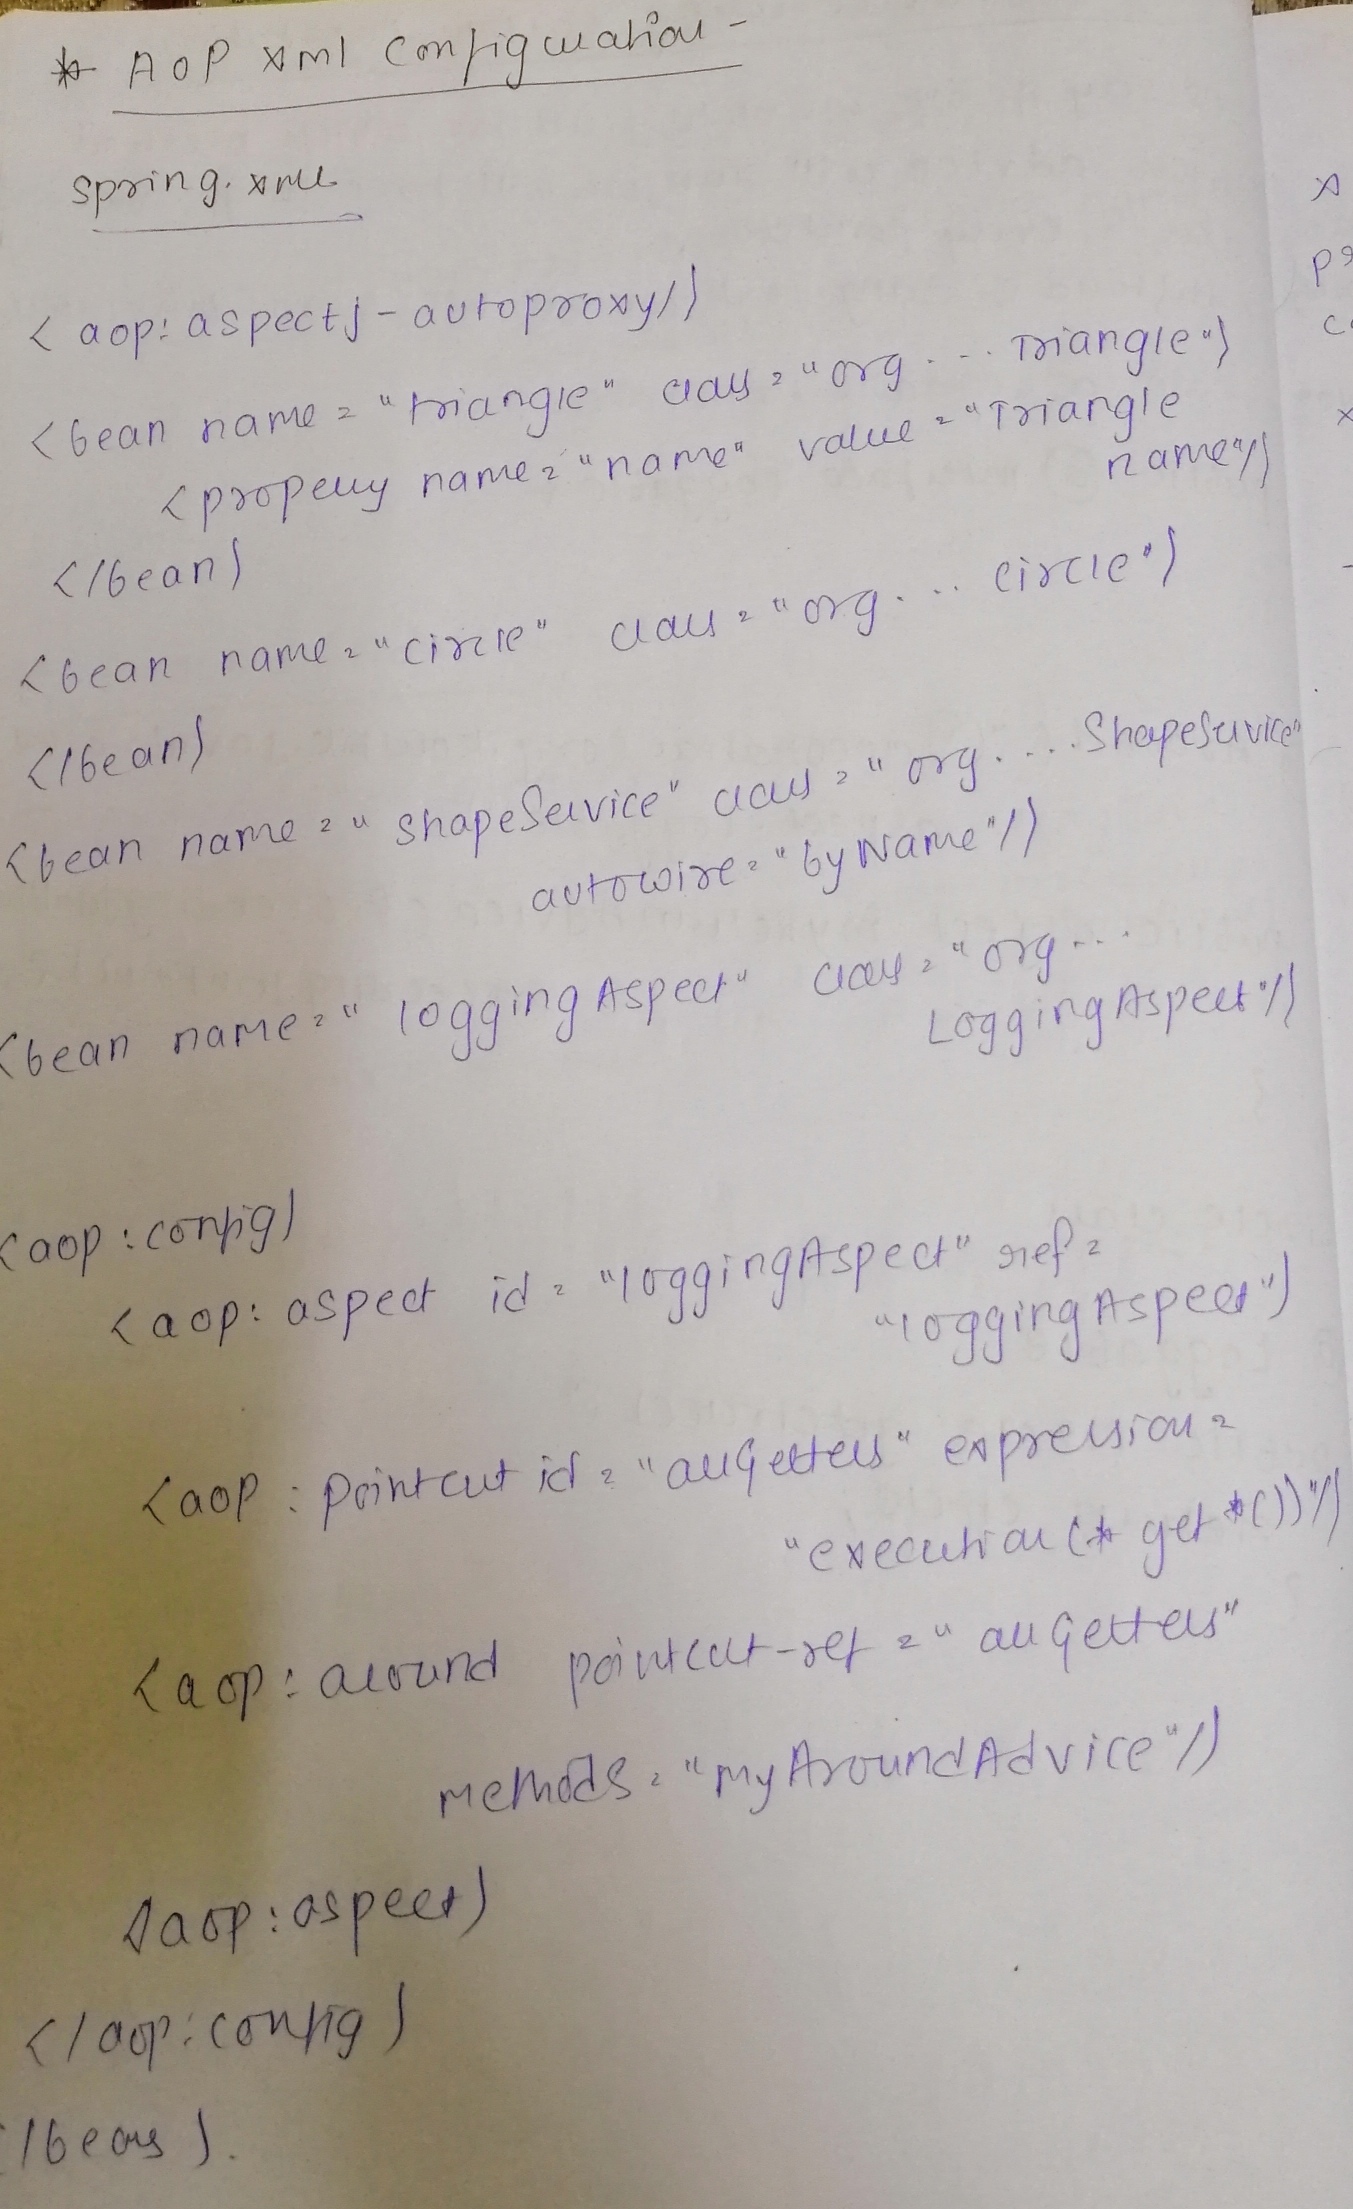 * AOP xml Configuration -
spring.xml
<aop:aspectj-autoproxy/>
<bean name="triangle" class="org.... Triangle">
<property name="name" value="Triangle
name"/>
</bean>
<bean name="circle" class="org.... Circle">
</bean>
<bean name="shapeService" class="org.... ShapeService"
autowire="byName"/>
<bean name="loggingAspect" class="org....
LoggingAspect"/>
<aop:config>
<aop:aspect id="loggingAspect" ref=
"loggingAspect">
<aop:pointcut id="allGetters" expression=
"execution(* get*())"/>
<aop:around pointcut-ref="allGetters"
methods="myAroundAdvice"/>
</aop:aspect>
</aop:config>
</beans>.